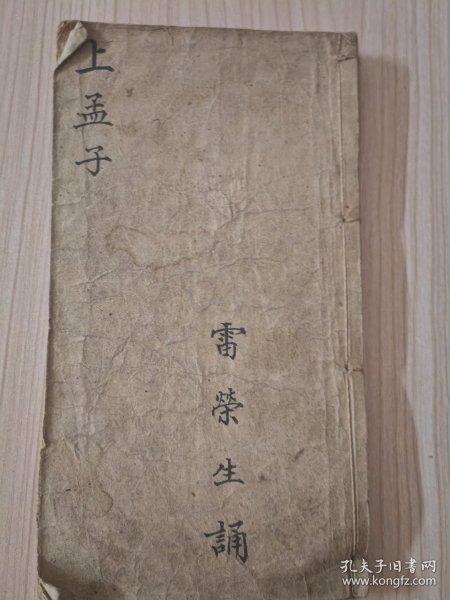 上孟子
雷榮生誦
孔夫子旧书网
www.kongfz.com